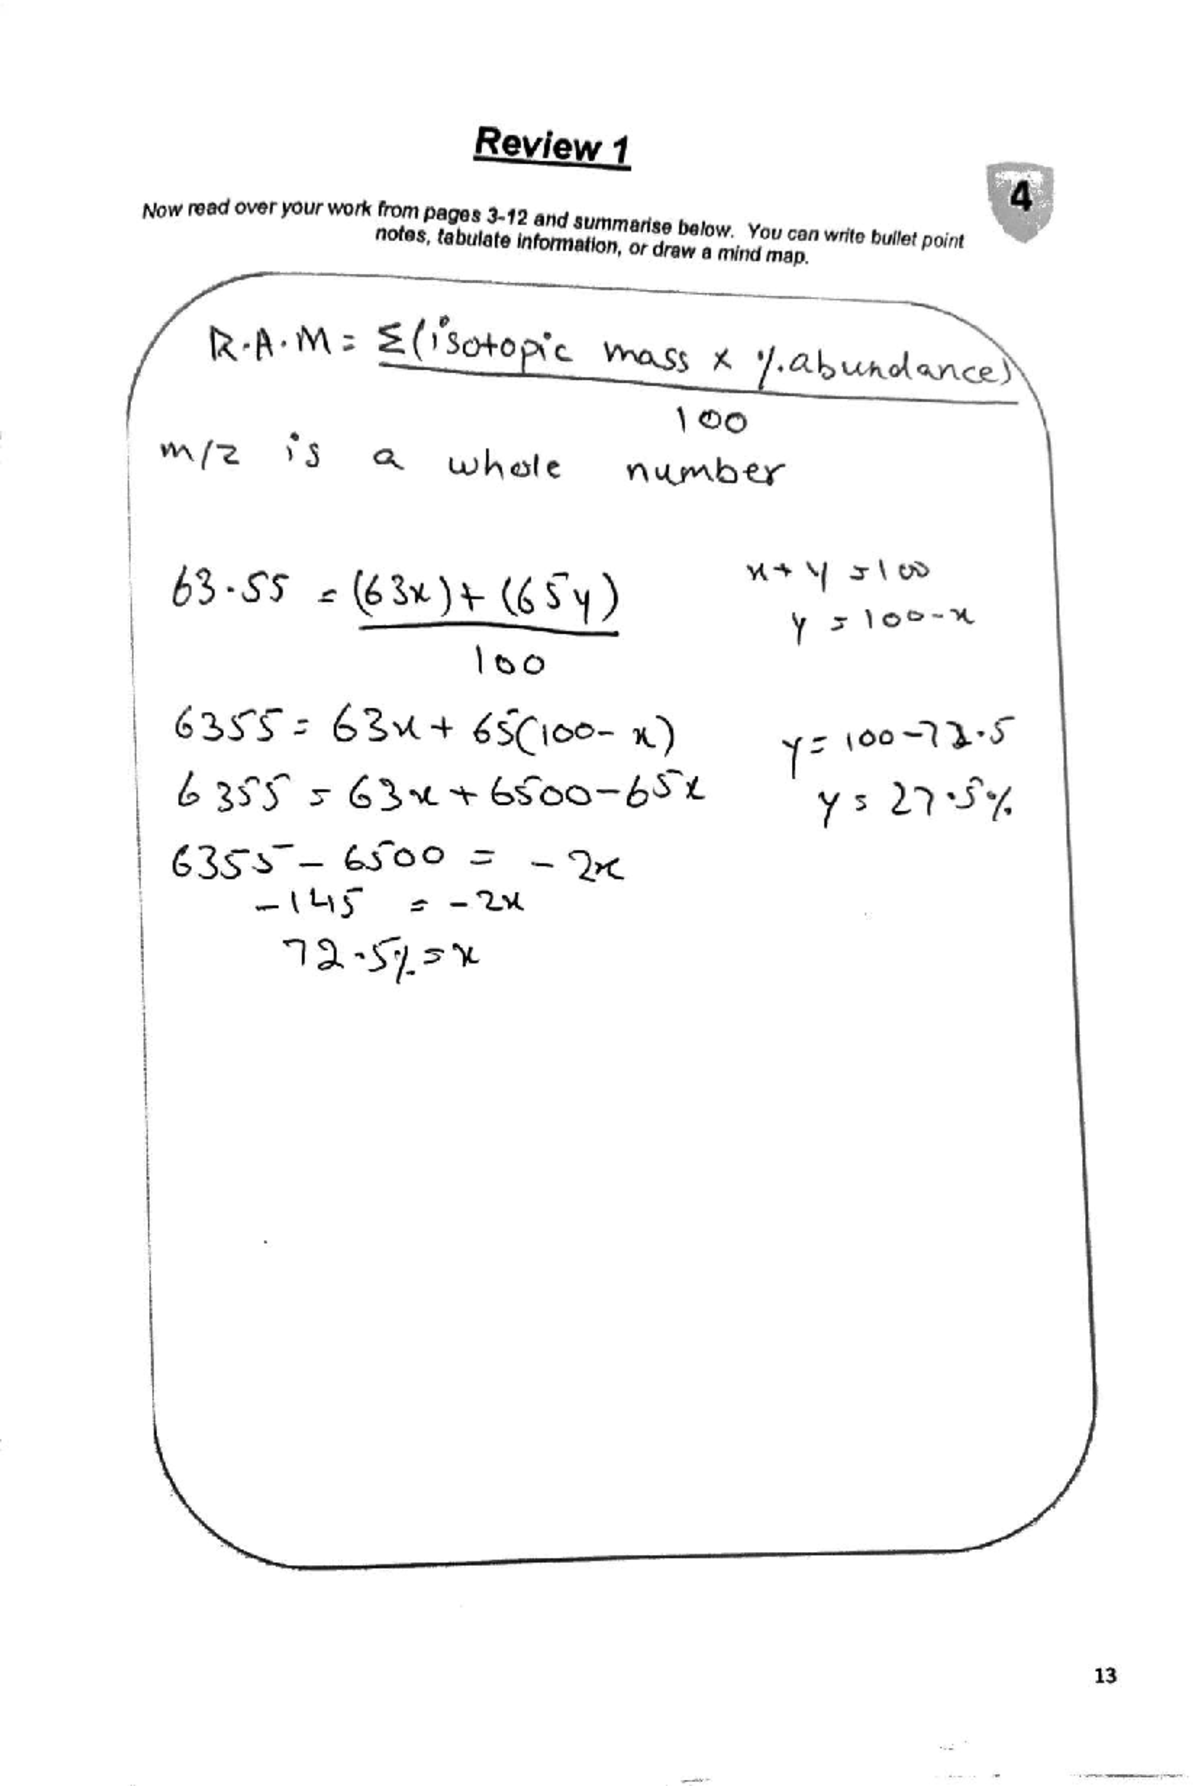 Review 1
4
Now read over your work from pages 3-12 and summarise below. You can write bullet point
notes, tabulate information, or draw a mind map.
R.A.M = Σ(isotopic mass x %.abundance)
100
m/z is a whole number
63.55 = (63x)+(65y)
100
x + y = 100
y = 100-x
6355 = 63x + 65(100-x)
6355 = 63x + 6500-65x
6355 - 6500 = -2x
-145 = -2x
72.5% = x
y = 100-72.5
y = 27.5%
13